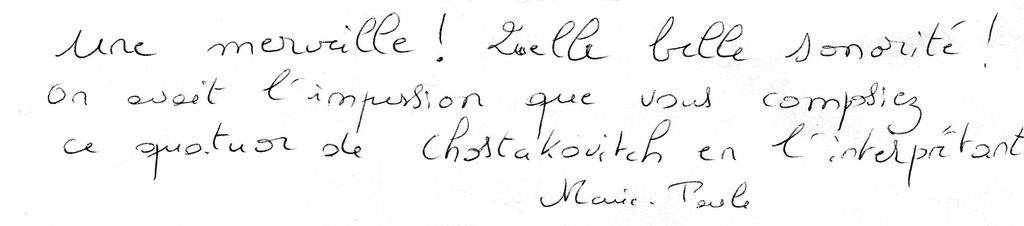 Une merveille ! Quelle belle sonorité !
On avait l'impression que vous composiez
ce quatuor de Chostakovitch en l'interprêtant
Marie-Paule